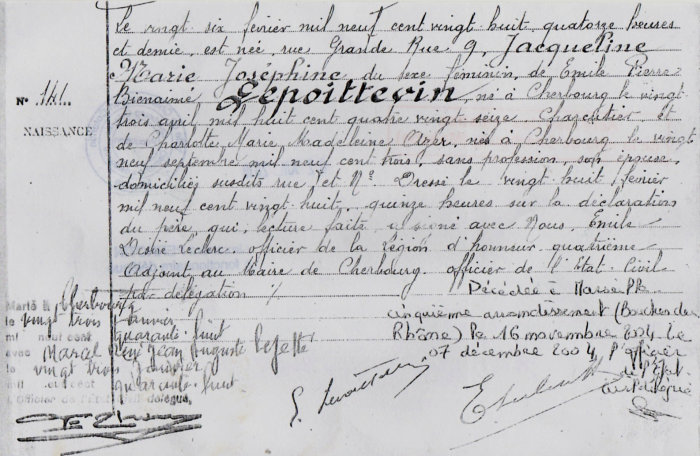 Le vingt six février mil neuf cent vingt huit, quatorze heures
et demie, est née, rue Grande Rue 9, Jacqueline
Marie Joséphine du sexe féminin, de Emile Pierre
Bienaimé Lepoittevin, né à Cherbourg le vingt-
trois avril mil huit cent quatre vingt seize, Charcutier et
de Charlotte Marie Madeleine, née à Cherbourg le vingt
neuf septembre mil neuf cent trois, sans profession, son épouse,
domiciliés susdits rue et Nº. Dressé le vingt huit février
mil neuf cent vingt huit, quinze heures sur la déclaration
du père, qui, lecture faite a signé avec Nous, Emile
Désiré Leclerc officier de la légion d'honneur quatrième
Adjoint au Maire de Cherbourg officier de l'Etat Civil
par délégation ./.
Nº 141.
NAISSANCE
Marié à Cherbourg
le vingt trois janvier
mil neuf cent quarante huit
avec Marcel René Jean Auguste
le vingt trois janvier
mil neuf cent quarante huit
L'Officier de l'Etat Civil délégué,
Décédée à Marseille
cinquième arrondissement (Bouches du
Rhône) le 16 novembre 2004. Le
07 décembre 2004, l'officier
de l'Etat
Civil délégué